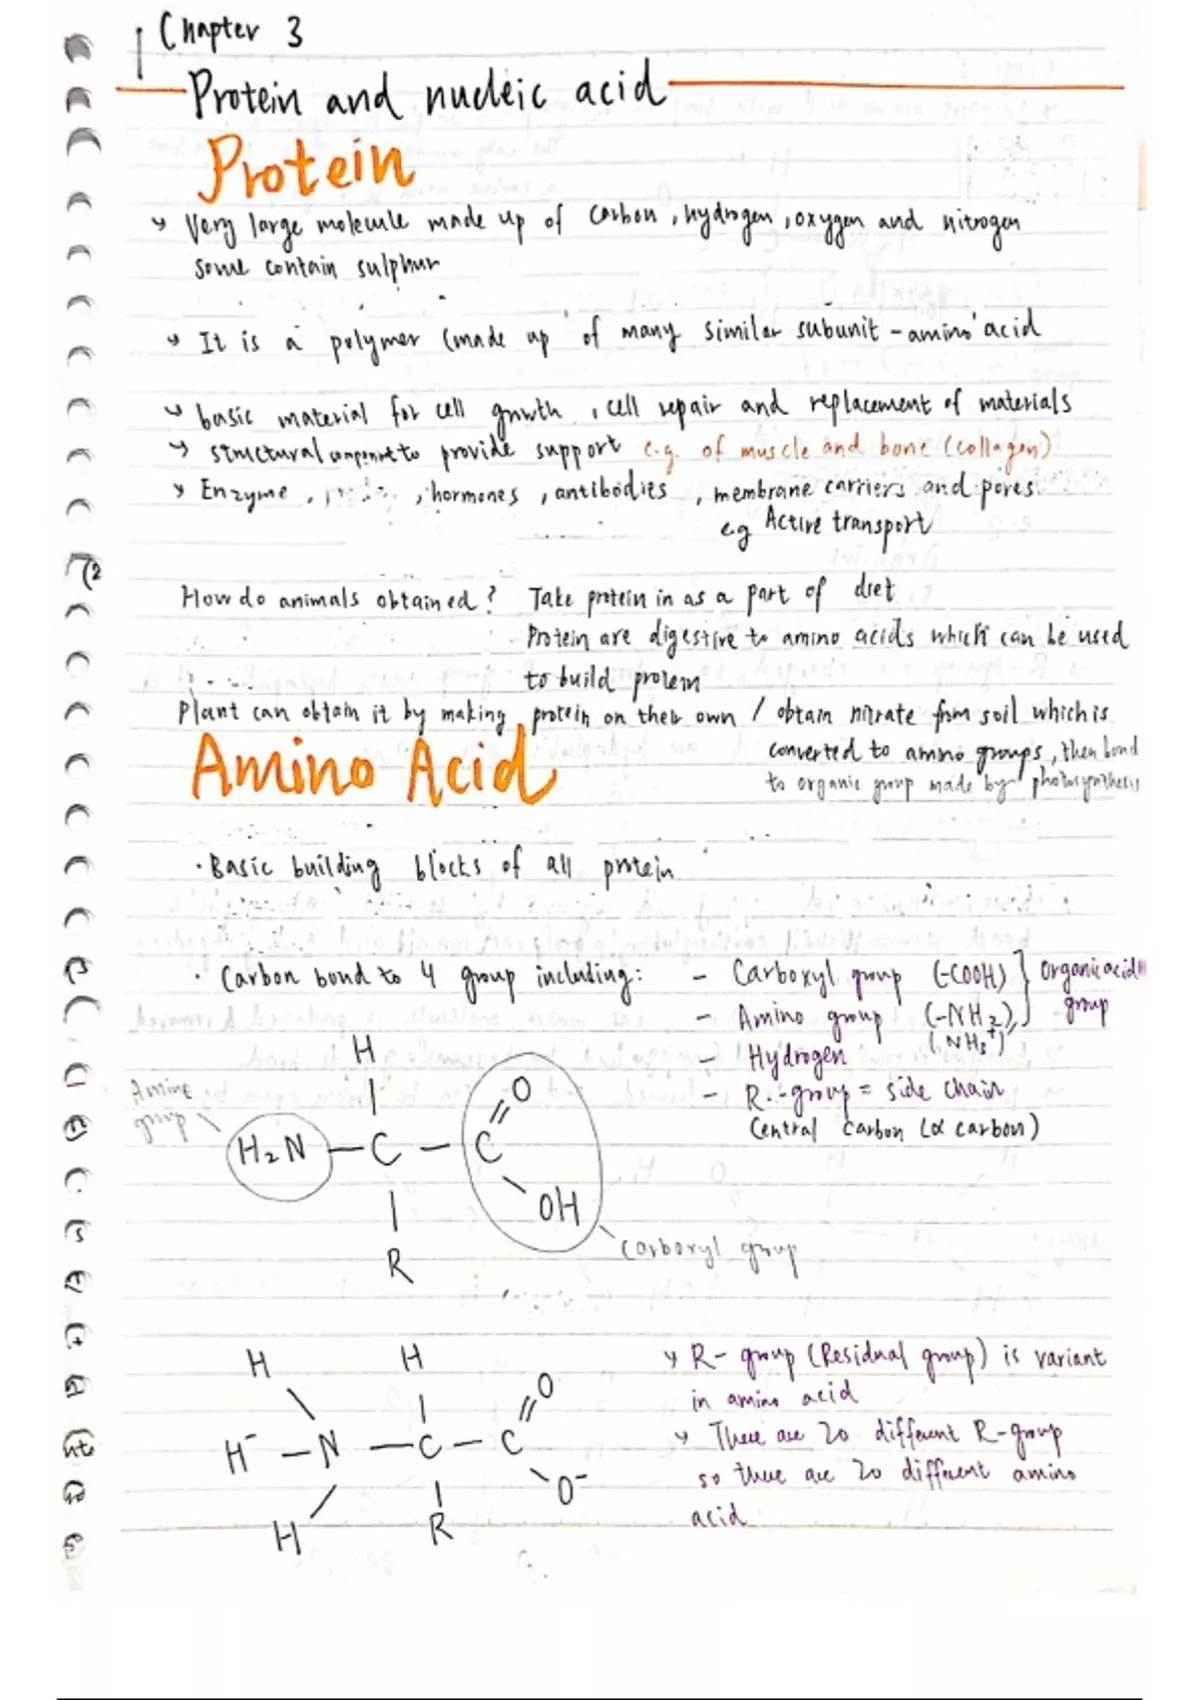 Chapter 3
Protein and nucleic acid
Protein
Very large molecule made up of carbon, hydrogen, oxygen and nitrogen
some contain sulphur
It is a polymer (made up of many similar subunit - amino acid
basic material for cell growth, cell repair and replacement of materials
structural component to provide support e.g. of muscle and bone (collagen)
Enzyme, , hormones, antibodies, membrane carriers and pores
e.g Active transport
How do animals obtained? Take protein in as a part of diet
Protein are digestive to amino acids which can be used
to build protein
Plant can obtain it by making protein on their own / obtain nitrate from soil which is
converted to amino groups, then bond
to organic group made by photosynthesis
Amino Acid
· Basic building blocks of all protein
· Carbon bond to 4 group including: - Carboxyl group (-COOH) } Organic acid
- Amino group (-NH2), group
(NH3+)
- Hydrogen
- R-group = side chain
Central carbon (α carbon)
Amine
group
H
H2N - C - C
O
OH
R
Carboxyl group
R- group (Residual group) is variant
in amino acid
There are 20 different R-group
so there are 20 different amino
acid
H H O
H- - N - C - C
O-
H R